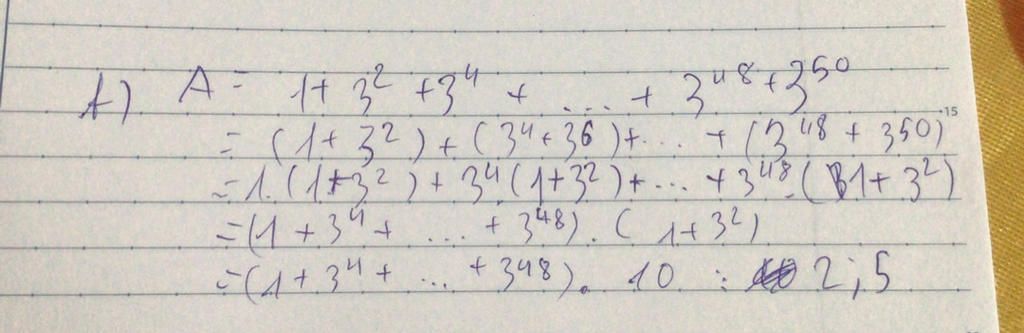 1) A = 1 + 3² + 3⁴ + .... + 3⁴⁸ + 3⁵⁰
= (1 + 3²) + (3⁴ + 3⁶) + ... + (3⁴⁸ + 3⁵⁰)
= 1. (1 + 3²) + 3⁴ (1 + 3²) + ... + 3⁴⁸. (1 + 3²)
= (1 + 3⁴ + ... + 3⁴⁸). (1 + 3²)
= (1 + 3⁴ + ... + 3⁴⁸). 10 ⋮ 2; 5
15